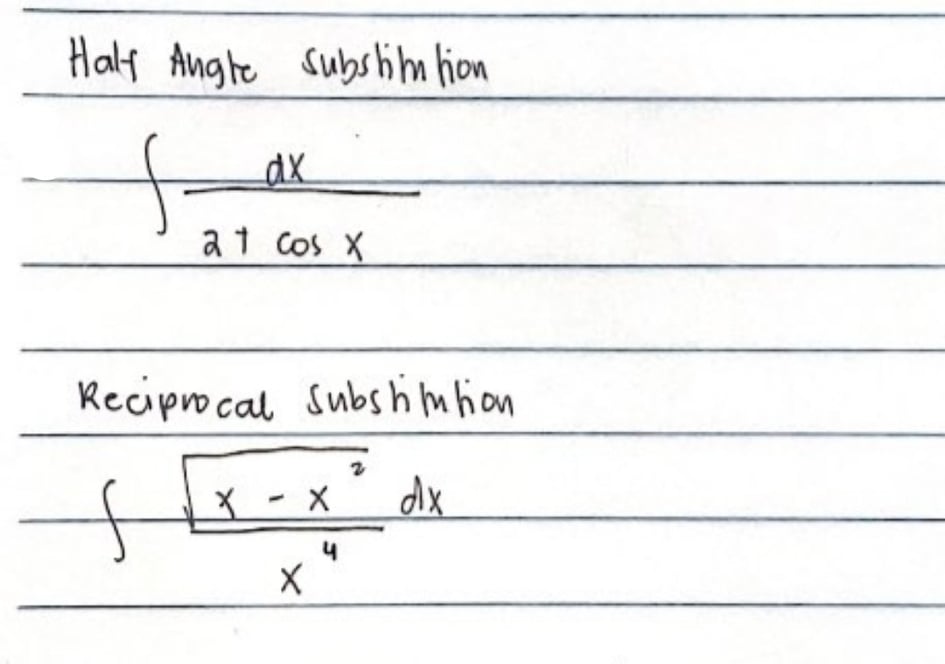 Half Angle Substitution
∫ dx / (2 + cos x)
Reciprocal Substitution
∫ √(x - x²) / x⁴ dx